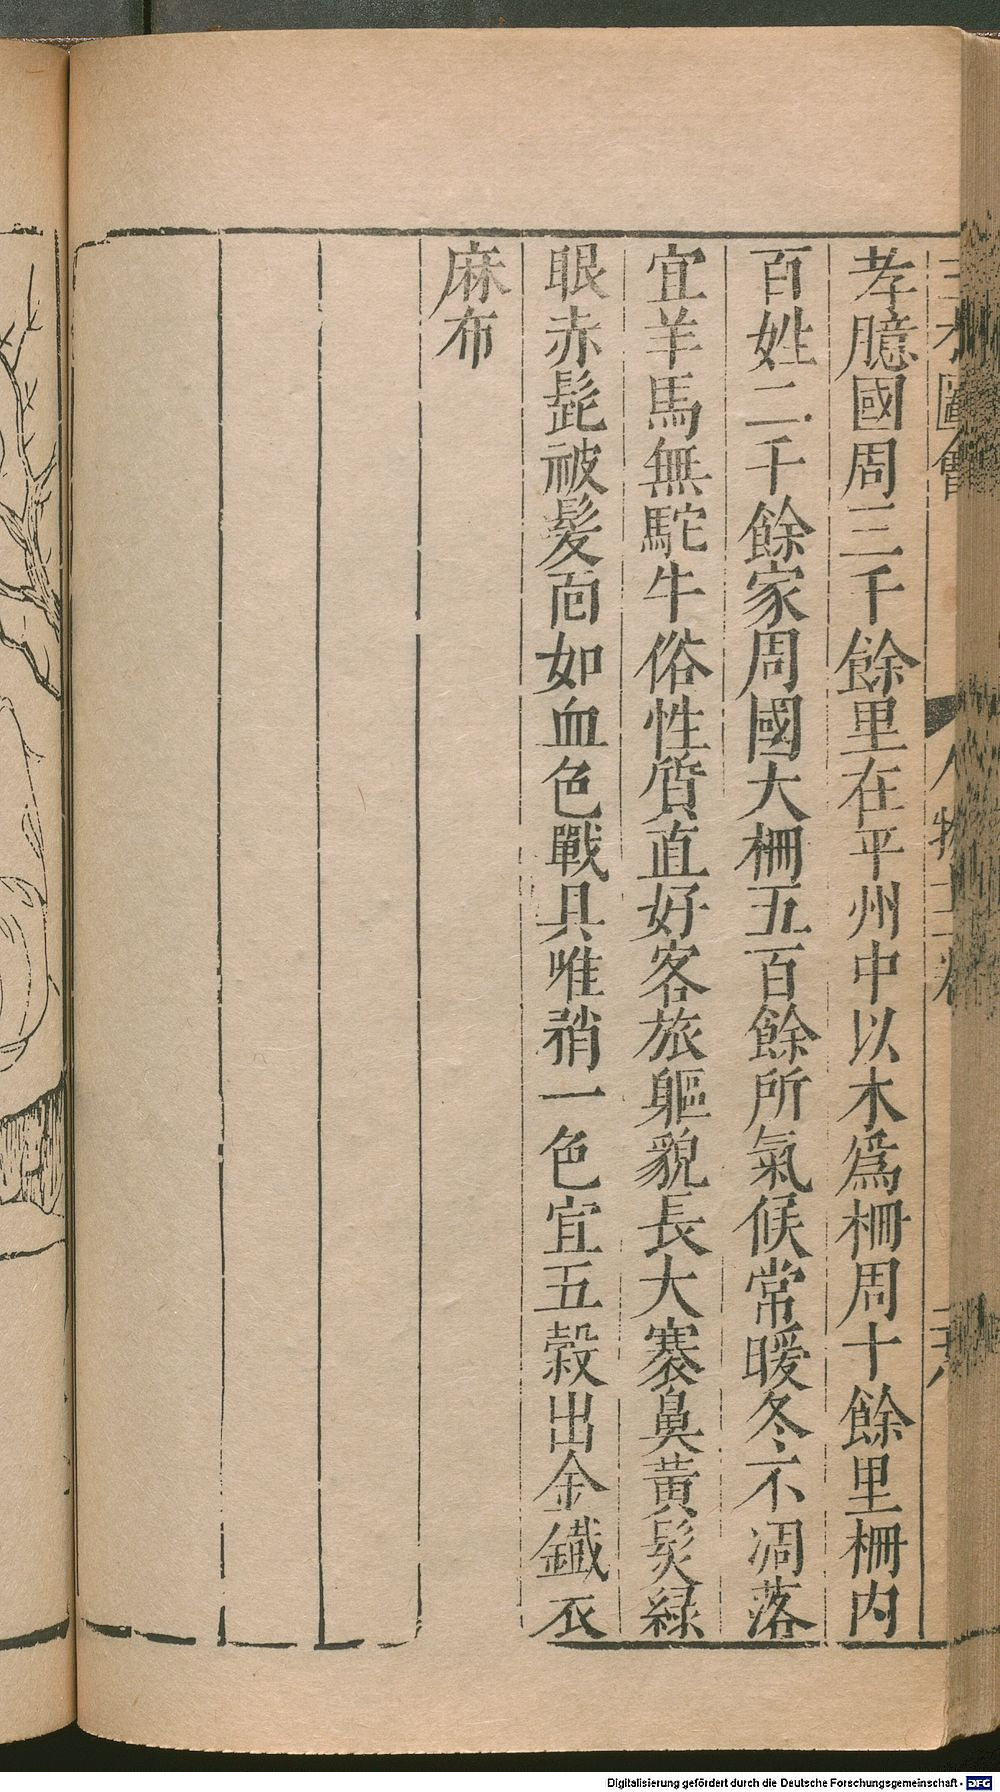 孝臆國周三千餘里在平州中以木爲柵周十餘里柵内
百姓二千餘家周國大柵五百餘所氣候常暖冬不凋落
宜羊馬無駝牛俗性質直好客旅軀貌長大褰鼻黄髮緑
眼赤髭被髮面如血色戰具唯矟一色宜五穀出金鐵衣
麻布
Digitalisierung gefördert durch die Deutsche Forschungsgemeinschaft - DFG